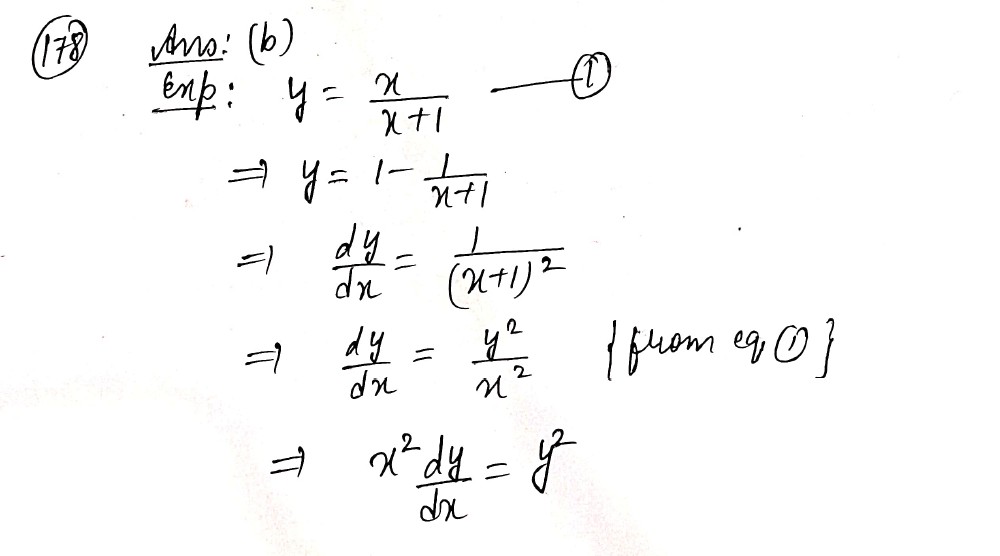 (178) Ans: (b)
Exp: y = x/(x+1) —— (1)
⇒ y = 1 - 1/(x+1)
⇒ dy/dx = 1/(x+1)²
⇒ dy/dx = y²/x² {from eq (1)}
⇒ x² dy/dx = y²